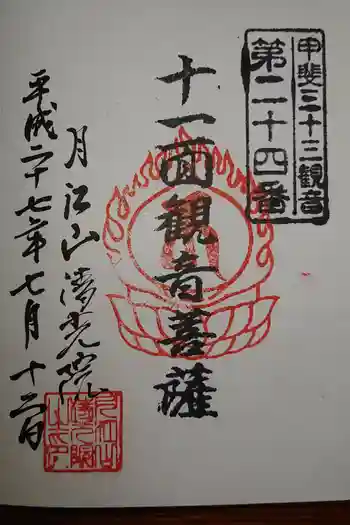 甲斐三十三観音
第二十四番
十一面観音菩薩
月江山清光院
平成二十七年七月十二日